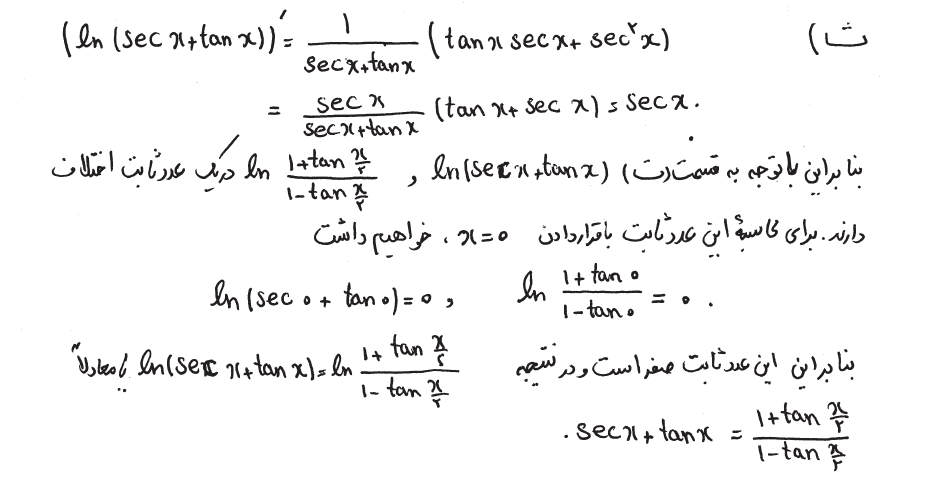 ث) (ln (sec x + tan x))' = 1/(sec x + tan x) (tan x sec x + sec²x)
= sec x/(sec x + tan x) (tan x + sec x) = sec x.
بنابراین با توجه به قسمت (ت) ln(sec x + tan x) و ln (1+tan x/۲)/(1-tan x/۲) در یک عدد ثابت اختلاف
دارند. برای محاسبهٔ این عدد ثابت با قراردادن x = ۰، خواهیم داشت
ln (sec ۰ + tan ۰) = ۰ , ln (1+tan ۰)/(1-tan ۰) = ۰ .
بنابراین این عدد ثابت صفر است و در نتیجه ln(sec x + tan x) = ln (1+tan x/۲)/(1-tan x/۲) یا معادلاً
sec x + tan x = (1+tan x/۲)/(1-tan x/۲) .